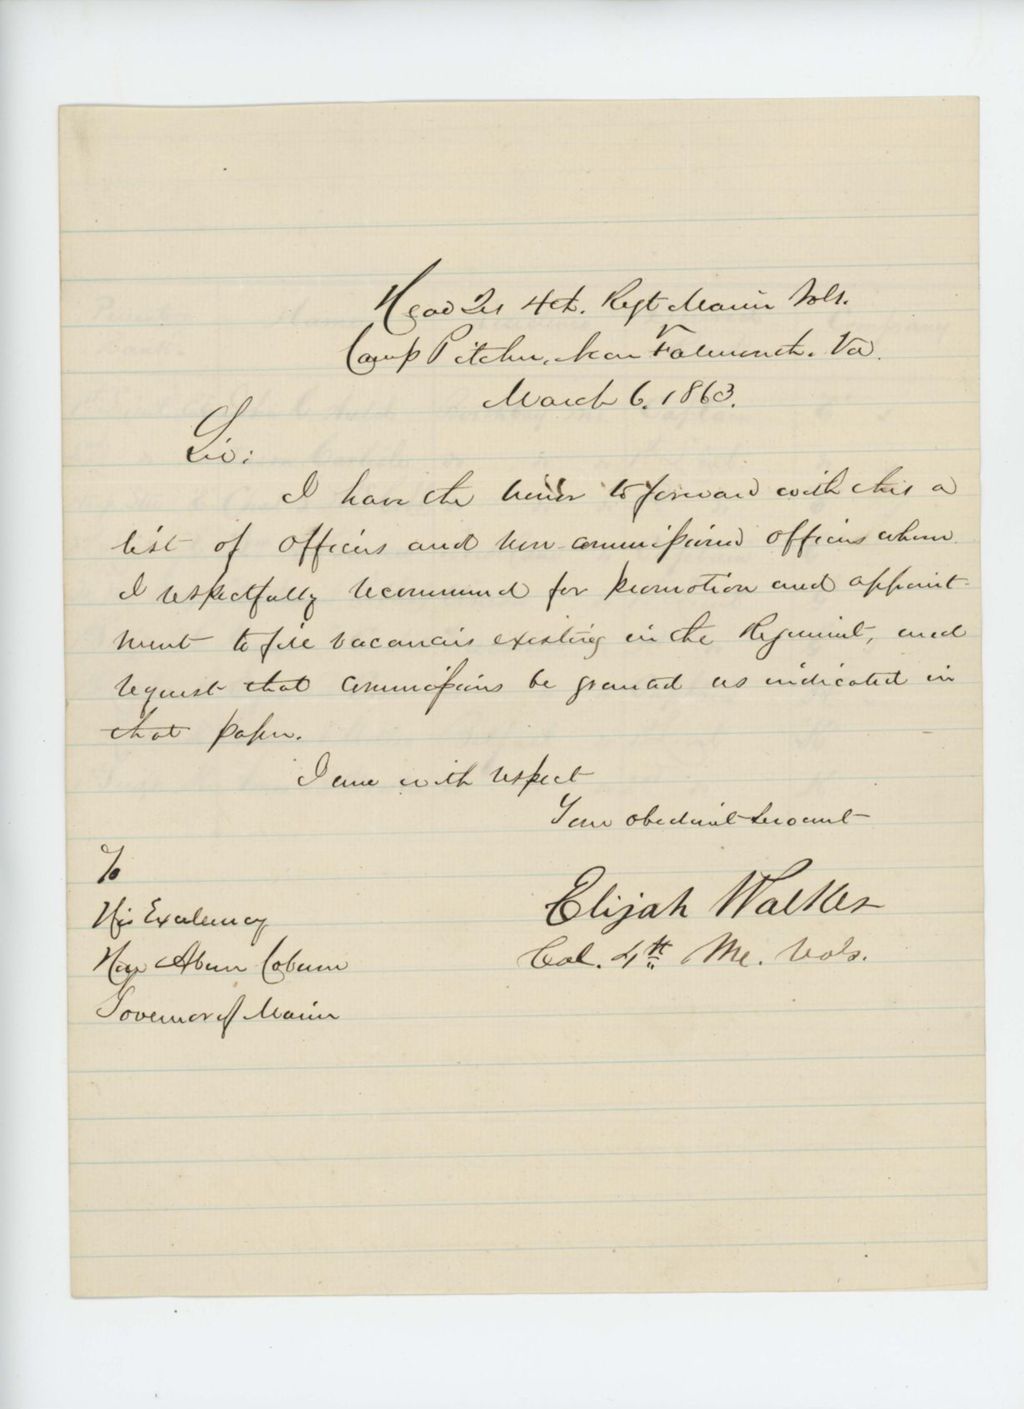 Head Qrs 4th. Regt Maine Vols.
Camp Pitcher, Near Falmouth. Va.
March 6. 1863.
Sir:
I have the honor to forward with this a
list of officers and non commissioned officers whom
I respectfully recommend for promotion and appoint-
ment to fill vacancies existing in the Regiment, and
request that commissions be granted as indicated in
that paper.
I am with respect
Your obedient servant
Elijah Walker
Col. 4th Me. Vols.
To
His Excelency
Hon Abner Coburn
Governor of Maine